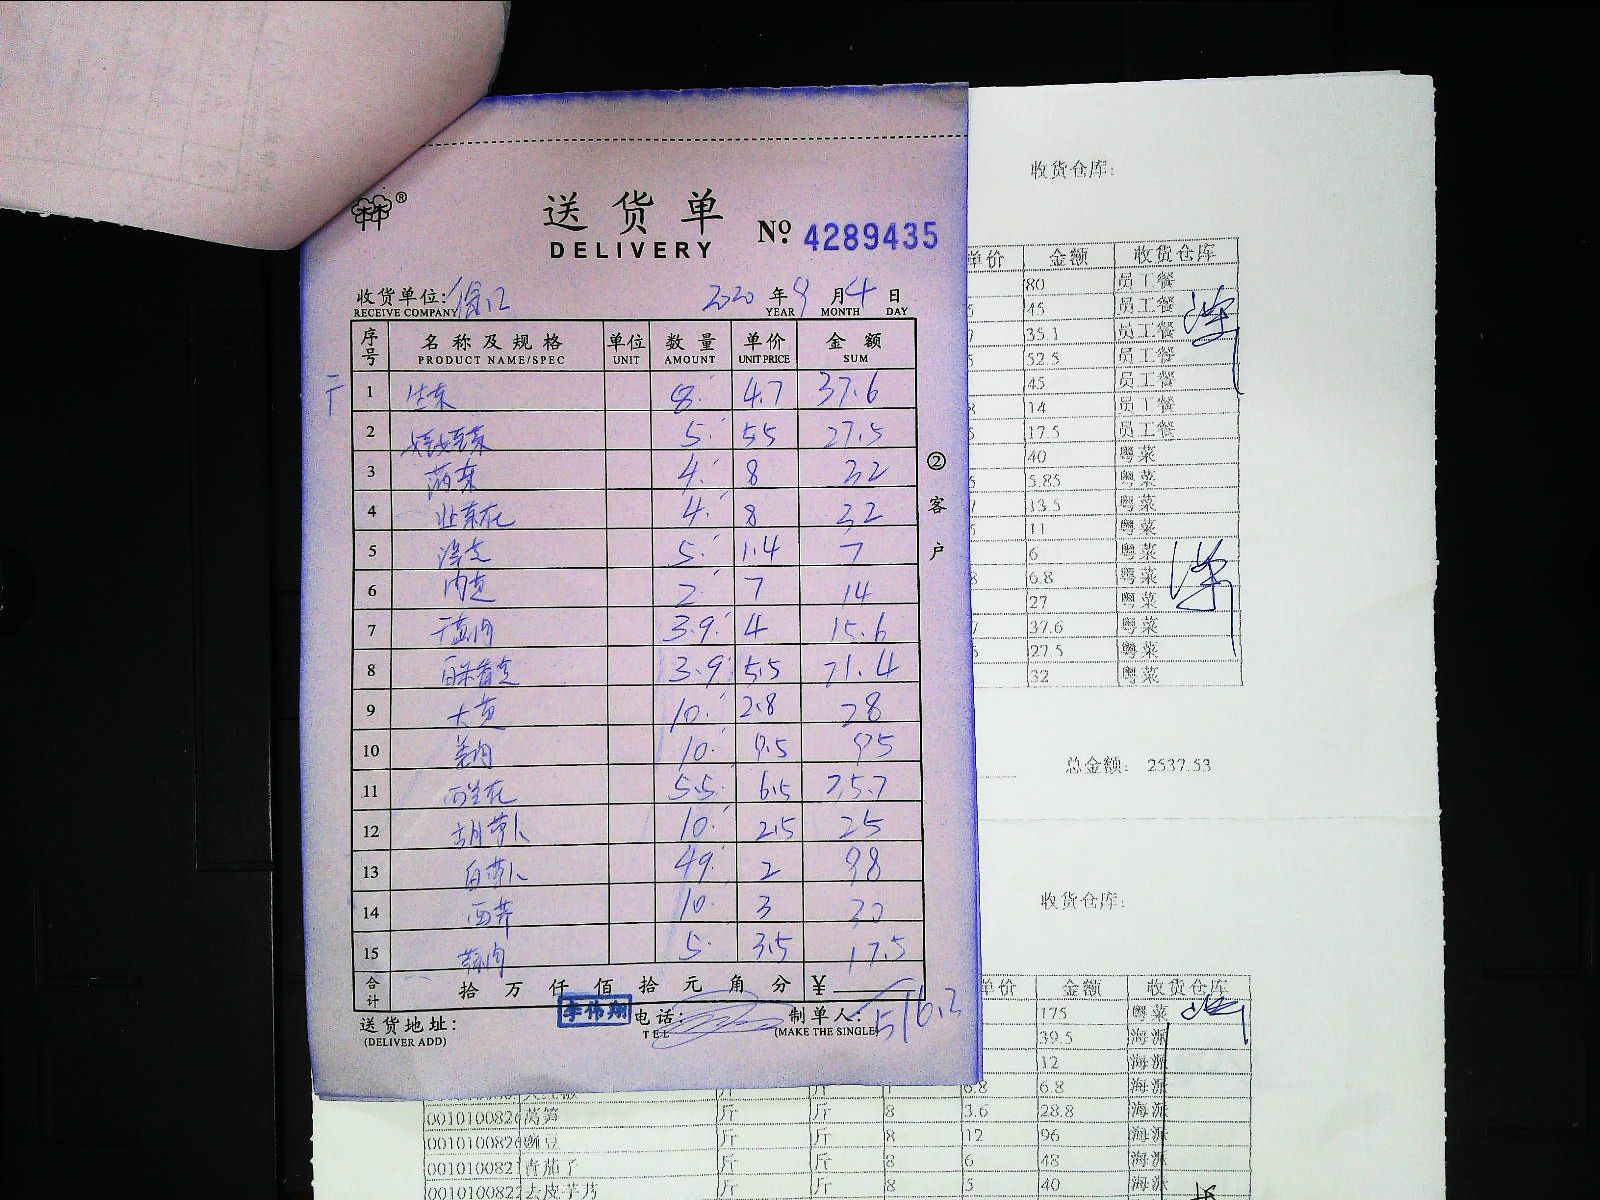 送货单
DELIVERY
№ 4289435
收货单位: 徐汇 2020 年 9 月 4 日
RECEIVE COMPANY YEAR MONTH DAY
序号 名称及规格 单位 数量 单价 金额
PRODUCT NAME/SPEC UNIT AMOUNT UNIT PRICE SUM
1 生菜 8 4.7 37.6
2 5 5.5 27.5
3 菠菜 4 8 32
4 4 8 32
5 5 1.4 7
6 2 7 14
7 3.9 4 15.6
8 3.9 5.5 21.4
9 大 10 2.8 28
10 姜肉 10 9.5 95
11 西兰花 5.5 6.5 35.7
12 胡萝卜 10 2.5 25
13 白萝卜 49 2 98
14 西芹 10 3 30
15 蒜肉 5 3.5 17.5
合计 拾 万 仟 佰 拾 元 角 分 ¥ 516.3
李伟翔
送货地址: 电话: 制单人:
(DELIVER ADD) TEL (MAKE THE SINGLE)
②客户
收货仓库:
单价 金额 收货仓库
80 员工餐
45 员工餐
35.1 员工餐
52.5 员工餐
45 员工餐
14 员工餐
17.5 员工餐
40 粤菜
5.85 粤菜
13.5 粤菜
11 粤菜
6 粤菜
6.8 粤菜
27 粤菜
37.6 粤菜
27.5 粤菜
32 粤菜
总金额: 2537.53
收货仓库:
单价 金额 收货仓库
175 粤菜
39.5 海派
12 海派
斤 斤 1 6.8 6.8 海派
001010082 莴笋 斤 斤 8 3.6 28.8 海派
001010082 豌豆 斤 斤 8 12 96 海派
001010082 青茄子 斤 斤 8 6 48 海派
001010082 去皮芋艿 斤 斤 8 5 40 海派